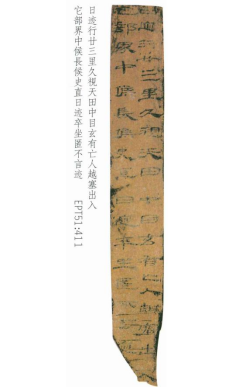 日迹行廿三里久視天田中目玄有亡人越塞出入
它部界中候長候史直日迹卒坐匿不言迹
EPT51:411